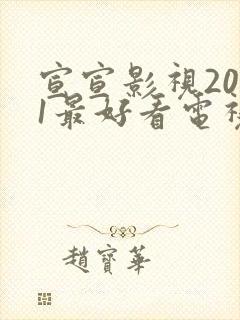 宣宣影視20
1最好看電視
趙寶華